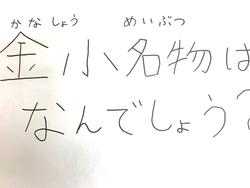 かなしょう めいぶつ
金小名物は
なんでしょう？